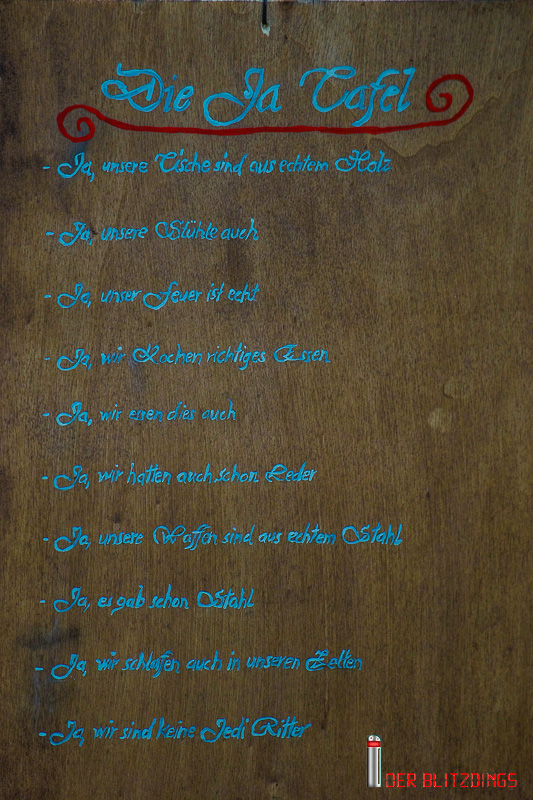 Die Ja Tafel
- Ja, unsere Tische sind aus echtem Holz
- Ja, unsere Stühle auch
- Ja, unser Feuer ist echt
- Ja, wir Kochen richtiges Essen
- Ja, wir essen dies auch
- Ja, wir hatten auch schon Leder
- Ja, unsere Waffen sind aus echtem Stahl
- Ja, es gab schon Stahl
- Ja, wir schlafen auch in unseren Zelten
- Ja, wir sind keine Jedi Ritter
DER BLITZDINGS